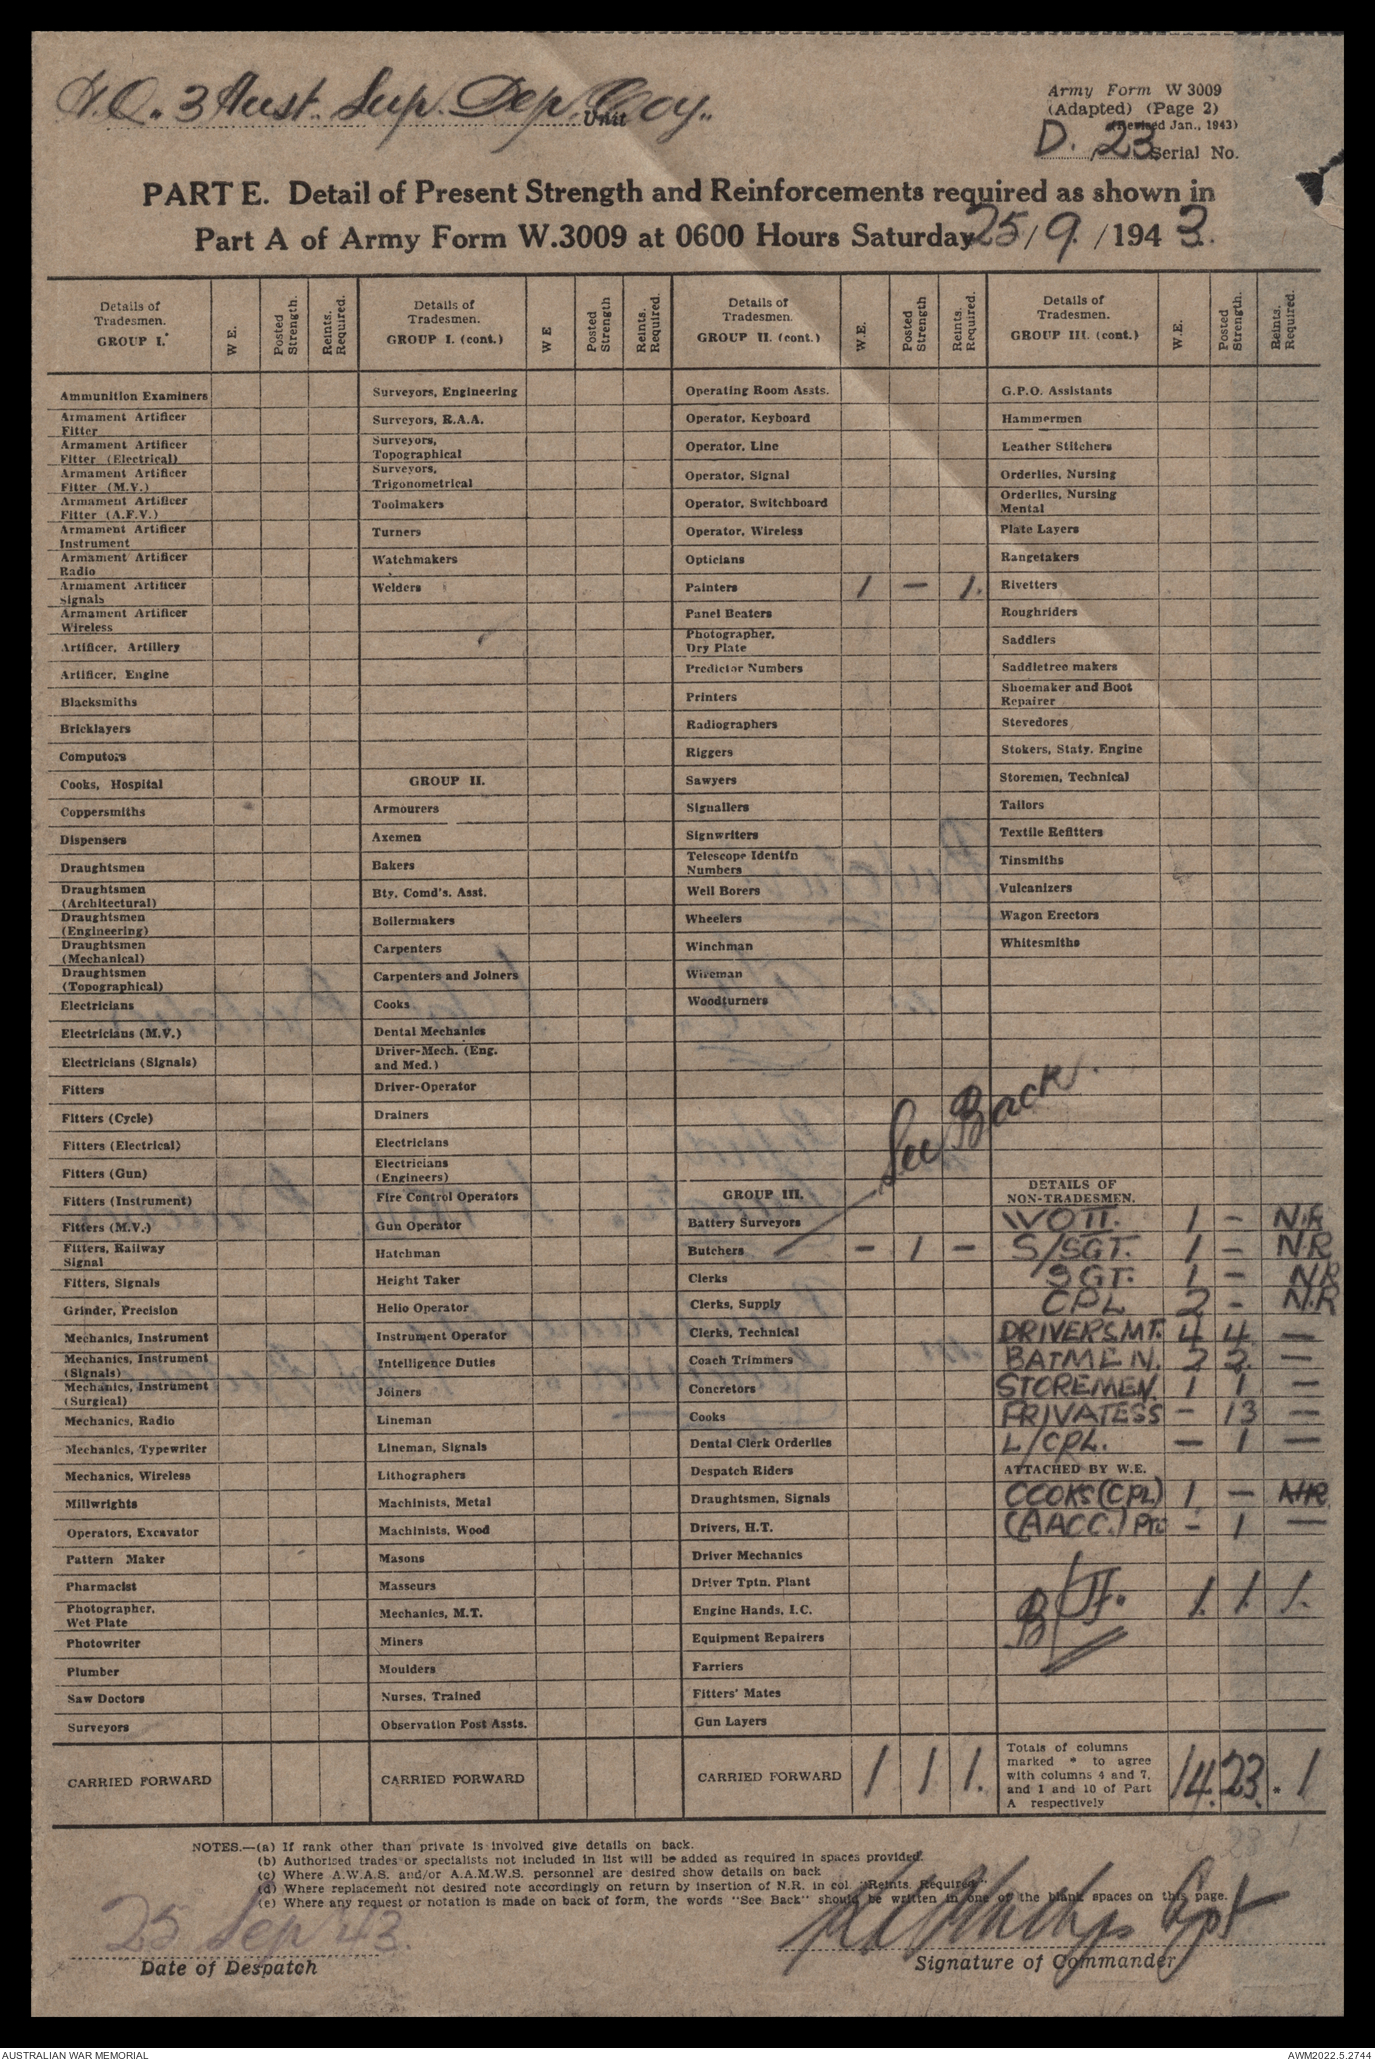 H.Q. 3 Aust. Sup. Dep. Coy.
Unit
Army Form W 3009
(Adapted) (Page 2)
(Revised Jan., 1943)
D. 23 Serial No.
PART E. Detail of Present Strength and Reinforcements required as shown in
Part A of Army Form W.3009 at 0600 Hours Saturday 25/9./1943.
Details of Tradesmen. GROUP I. W E. Posted Strength. Reints. Required.
Ammunition Examiners
Armament Artificer Fitter
Armament Artificer Fitter (Electrical)
Armament Artificer Fitter (M.V.)
Armament Artificer Fitter (A.F.V.)
Armament Artificer Instrument
Armament Artificer Radio
Armament Artificer Signals
Armament Artificer Wireless
Artificer, Artillery
Artificer, Engine
Blacksmiths
Bricklayers
Computors
Cooks, Hospital
Coppersmiths
Dispensers
Draughtsmen
Draughtsmen (Architectural)
Draughtsmen (Engineering)
Draughtsmen (Mechanical)
Draughtsmen (Topographical)
Electricians
Electricians (M.V.)
Electricians (Signals)
Fitters
Fitters (Cycle)
Fitters (Electrical)
Fitters (Gun)
Fitters (Instrument)
Fitters (M.V.)
Fitters, Railway Signal
Fitters, Signals
Grinder, Precision
Mechanics, Instrument
Mechanics, Instrument (Signals)
Mechanics, Instrument (Surgical)
Mechanics, Radio
Mechanics, Typewriter
Mechanics, Wireless
Millwrights
Operators, Excavator
Pattern Maker
Pharmacist
Photographer, Wet Plate
Photowriter
Plumber
Saw Doctors
Surveyors
CARRIED FORWARD
Details of Tradesmen. GROUP I. (cont.) W E Posted Strength Reints. Required.
Surveyors, Engineering
Surveyors, R.A.A.
Surveyors, Topographical
Surveyors, Trigonometrical
Toolmakers
Turners
Watchmakers
Welders
GROUP II.
Armourers
Axemen
Bakers
Bty. Comd's. Asst.
Boilermakers
Carpenters
Carpenters and Joiners
Cooks
Dental Mechanics
Driver-Mech. (Eng. and Med.)
Driver-Operator
Drainers
Electricians
Electricians (Engineers)
Fire Control Operators
Gun Operator
Hatchman
Height Taker
Helio Operator
Instrument Operator
Intelligence Duties
Joiners
Lineman
Lineman, Signals
Lithographers
Machinists, Metal
Machinists, Wood
Masons
Masseurs
Mechanics, M.T.
Miners
Moulders
Nurses, Trained
Observation Post Assts.
CARRIED FORWARD
Details of Tradesmen. GROUP II. (cont.) W.E. Posted Strength Reints. Required.
Operating Room Assts.
Operator, Keyboard
Operator, Line
Operator, Signal
Operator, Switchboard
Operator, Wireless
Opticians
Painters 1 — 1.
Panel Beaters
Photographer, Dry Plate
Predictor Numbers
Printers
Radiographers
Riggers
Sawyers
Signallers
Signwriters
Telescope Identfn Numbers
Well Borers
Wheelers
Winchman
Wireman
Woodturners
See Back.
GROUP III.
Battery Surveyors
Butchers — 1 —
Clerks
Clerks, Supply
Clerks, Technical
Coach Trimmers
Concretors
Cooks
Dental Clerk Orderlies
Despatch Riders
Draughtsmen, Signals
Drivers, H.T.
Driver Mechanics
Driver Tptn. Plant
Engine Hands, I.C.
Equipment Repairers
Farriers
Fitters' Mates
Gun Layers
CARRIED FORWARD 1 1 1.
Details of Tradesmen. GROUP III. (cont.) W.E. Posted Strength. Reints. Required.
G.P.O. Assistants
Hammermen
Leather Stitchers
Orderlies, Nursing
Orderlies, Nursing Mental
Plate Layers
Rangetakers
Rivetters
Roughriders
Saddlers
Saddletree makers
Shoemaker and Boot Repairer
Stevedores
Stokers, Staty. Engine
Storemen, Technical
Tailors
Textile Refitters
Tinsmiths
Vulcanizers
Wagon Erectors
Whitesmiths
DETAILS OF NON-TRADESMEN.
WOII. 1 — N.R
S/SGT. 1 — N.R
SGT. 1 — N.R
CPL 2 - N.R
DRIVERS.MT. 4 4 —
BATMEN. 2 2. —
STOREMEN. 1 1 —
PRIVATESS — 13 —
L/CPL. — 1 —
ATTACHED BY W.E.
COOKS (CPL) 1 — N.R.
(AACC.) Pte — 1 —
B/F. 1. 1. 1.
Totals of columns marked * to agree with columns 4 and 7, and 1 and 10 of Part A respectively 14. 23. * 1
23 1
NOTES.—(a) If rank other than private is involved give details on back.
(b) Authorised trades or specialists not included in list will be added as required in spaces provided.
(c) Where A.W.A.S. and/or A.A.M.W.S. personnel are desired show details on back
(d) Where replacement not desired note accordingly on return by insertion of N.R. in col. "Reints. Required."
(e) Where any request or notation is made on back of form, the words "See Back" should be written in one of the blank spaces on this page.
25 Sep 43.
Date of Despatch
Capt
Signature of Commander
AUSTRALIAN WAR MEMORIAL
AWM2022.5.2744